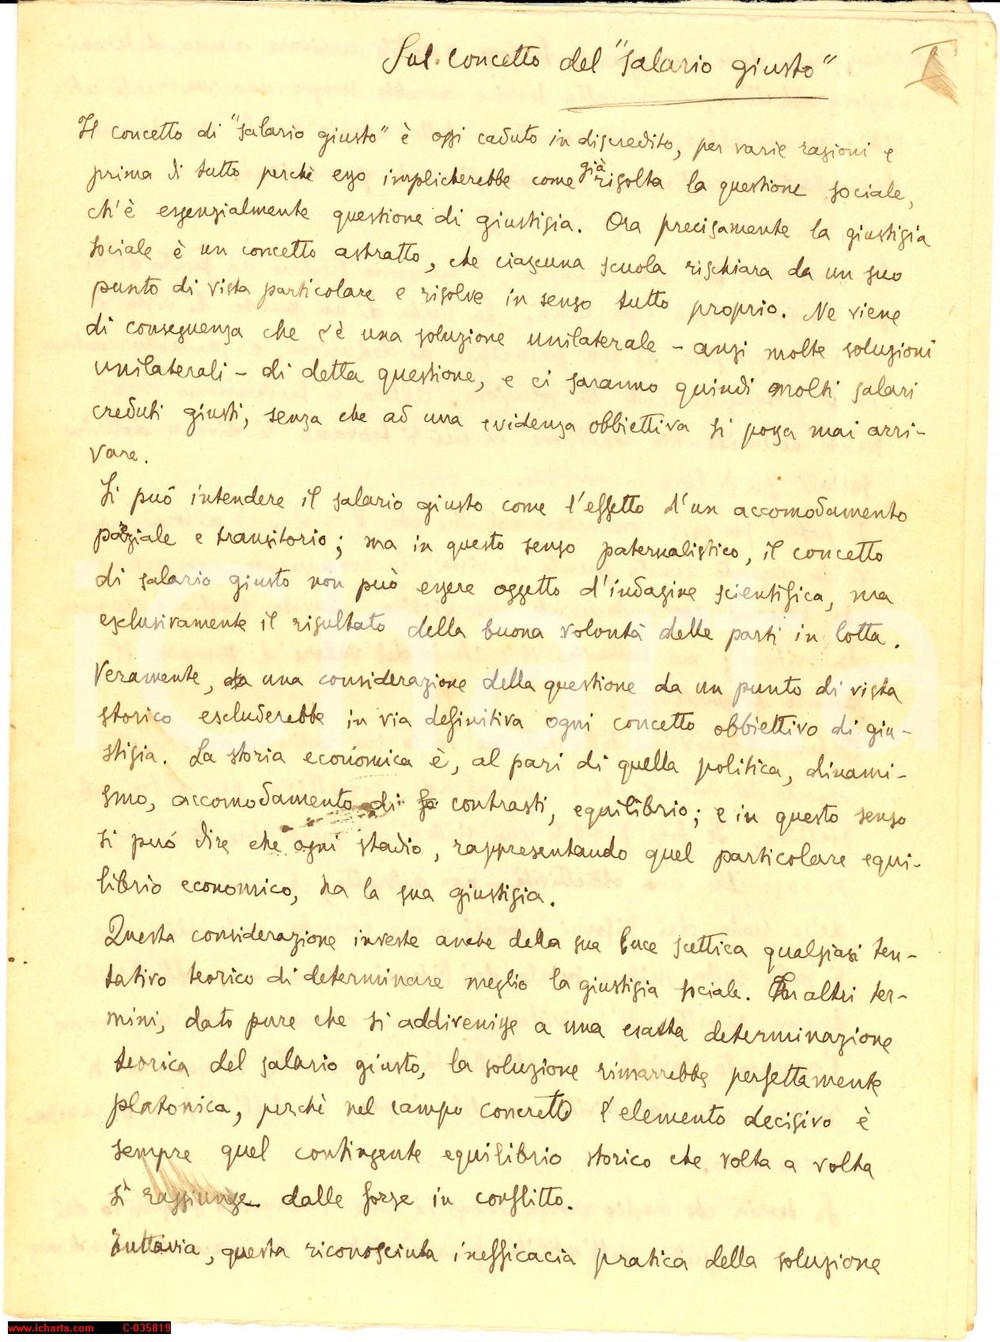 Sul concetto del "salario giusto"
I
Il concetto di "salario giusto" è oggi caduto in discredito, per varie ragioni e
prima di tutto perchè esso implicherebbe come già risolta la questione sociale,
ch'è essenzialmente questione di giustizia. Ora precisamente la giustizia
sociale è un concetto astratto, che ciascuna scuola rischiara da un suo
punto di vista particolare e risolve in senso tutto proprio. Ne viene
di conseguenza che c'è una soluzione unilaterale - anzi molte soluzioni
unilaterali - di detta questione, e ci saranno quindi molti salari
creduti giusti, senza che ad una evidenza obbiettiva si possa mai arri-
vare.
Si può intendere il salario giusto come l'effetto d'un accomodamento
parziale e transitorio; ma in questo senso paternalistico, il concetto
di salario giusto non può essere oggetto d'indagine scientifica, ma
esclusivamente il risultato della buona volontà delle parti in lotta.
Veramente, una considerazione della questione da un punto di vista
storico escluderebbe in via definitiva ogni concetto obbiettivo di giu-
stizia. La storia económica è, al pari di quella politica, dinami-
smo, accomodamento di contrasti, equilibrio; e in questo senso
si può dire che ogni stadio, rappresentando quel particolare equi-
librio economico, ha la sua giustizia.
Questa considerazione investe anche della sua luce scettica qualsiasi ten-
tativo teorico di determinare meglio la giustizia sociale. In altri ter-
mini, dato pure che si addivenisse a una esatta determinazione
teorica del salario giusto, la soluzione rimarrebbe perfettamente
platonica, perchè nel campo concreto l'elemento decisivo è
sempre quel contingente equilibrio storico che volta a volta
si raggiunge dalle forze in conflitto.
Tuttavia, questa riconosciuta inefficacia pratica della soluzione
www.icharta.com C-035819